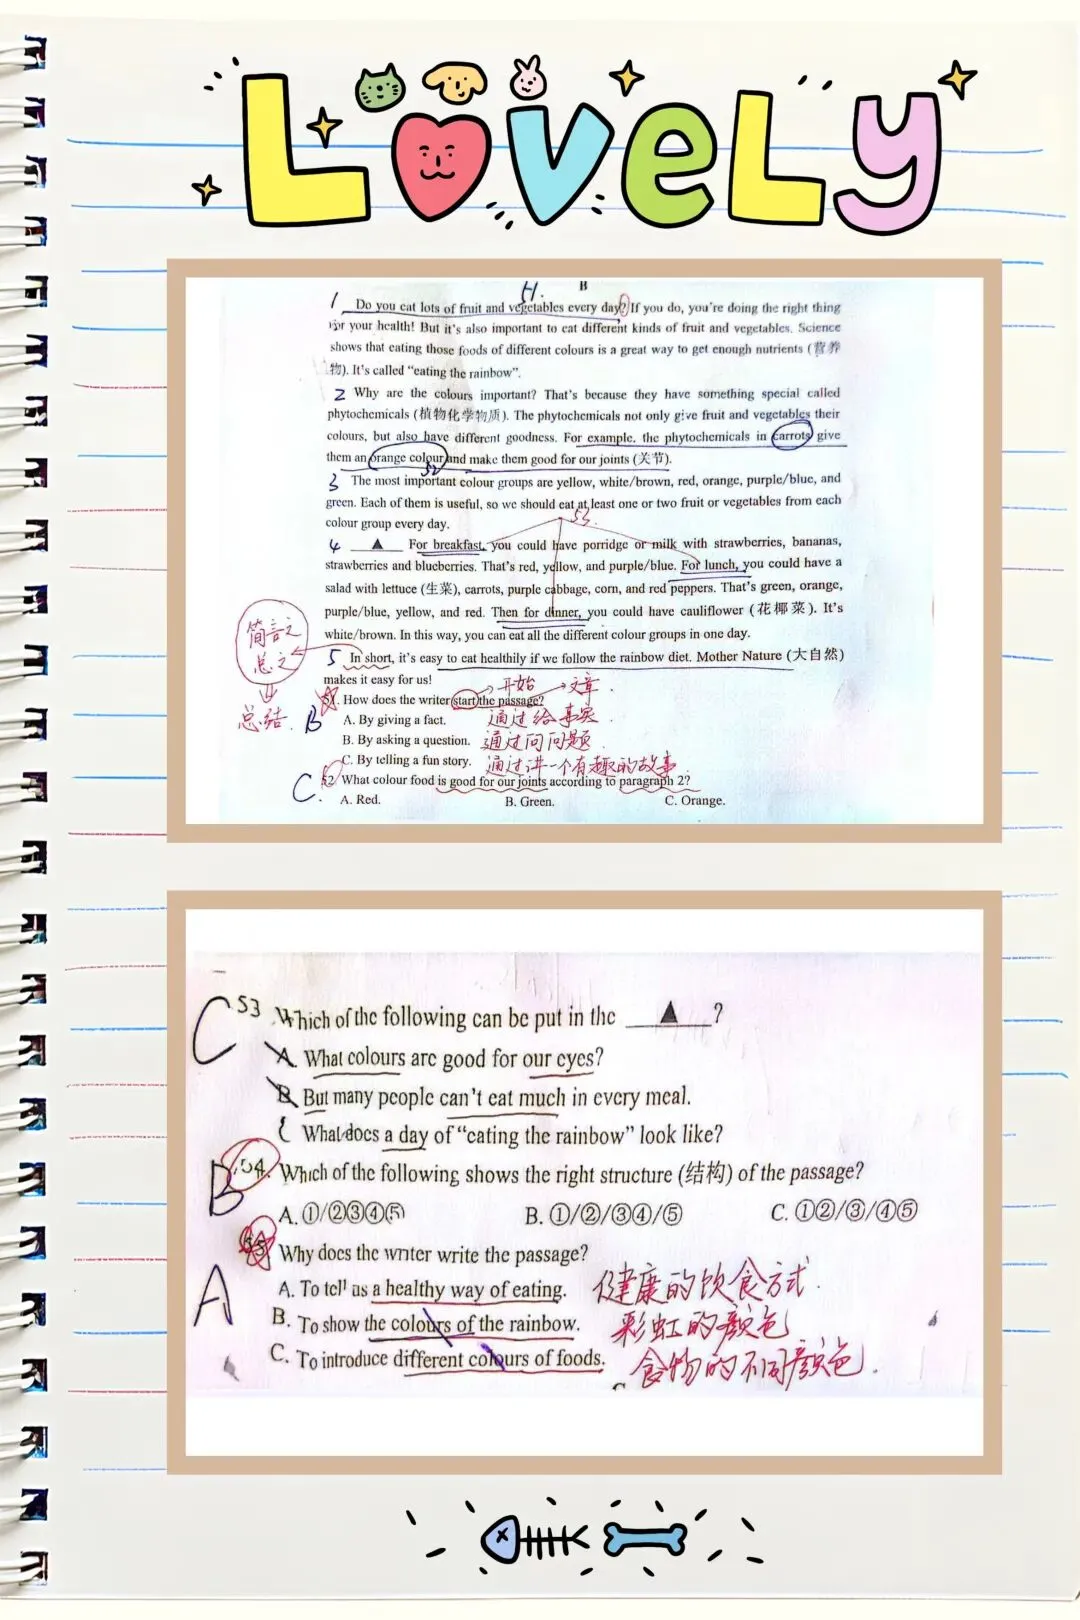 LOVELY
51.
B
1 Do you eat lots of fruit and vegetables every day? If you do, you're doing the right thing
for your health! But it's also important to eat different kinds of fruit and vegetables. Science
shows that eating those foods of different colours is a great way to get enough nutrients (营养
物). It's called “eating the rainbow”.
2 Why are the colours important? That's because they have something special called
phytochemicals (植物化学物质). The phytochemicals not only give fruit and vegetables their
colours, but also have different goodness. For example, the phytochemicals in carrots give
them an orange colour and make them good for our joints (关节).
52
3 The most important colour groups are yellow, white/brown, red, orange, purple/blue, and
green. Each of them is useful, so we should eat at least one or two fruit or vegetables from each
colour group every day.
53.
4 ▲ For breakfast, you could have porridge or milk with strawberries, bananas,
strawberries and blueberries. That's red, yellow, and purple/blue. For lunch, you could have a
salad with lettuce (生菜), carrots, purple cabbage, corn, and red peppers. That's green, orange,
purple/blue, yellow, and red. Then for dinner, you could have cauliflower (花椰菜). It's
white/brown. In this way, you can eat all the different colour groups in one day.
简言之
总之
总结
5 In short, it's easy to eat healthily if we follow the rainbow diet. Mother Nature (大自然)
makes it easy for us!
开始 文章.
B 51. How does the writer start the passage?
A. By giving a fact. 通过给事实.
B. By asking a question. 通过问问题.
C. By telling a fun story. 通过讲一个有趣的故事.
C. 52 What colour food is good for our joints according to paragraph 2?
A. Red. B. Green. C. Orange.
C 53 Which of the following can be put in the ▲?
A. What colours are good for our eyes?
B. But many people can't eat much in every meal.
C What does a day of “eating the rainbow” look like?
B 54. Which of the following shows the right structure (结构) of the passage?
A. ①/②③④⑤ B. ①/②/③④/⑤ C. ①②/③/④⑤
A 55 Why does the writer write the passage?
A. To tell us a healthy way of eating. 健康的饮食方式.
B. To show the colours of the rainbow. 彩虹的颜色
C. To introduce different colours of foods. 食物的不同颜色.